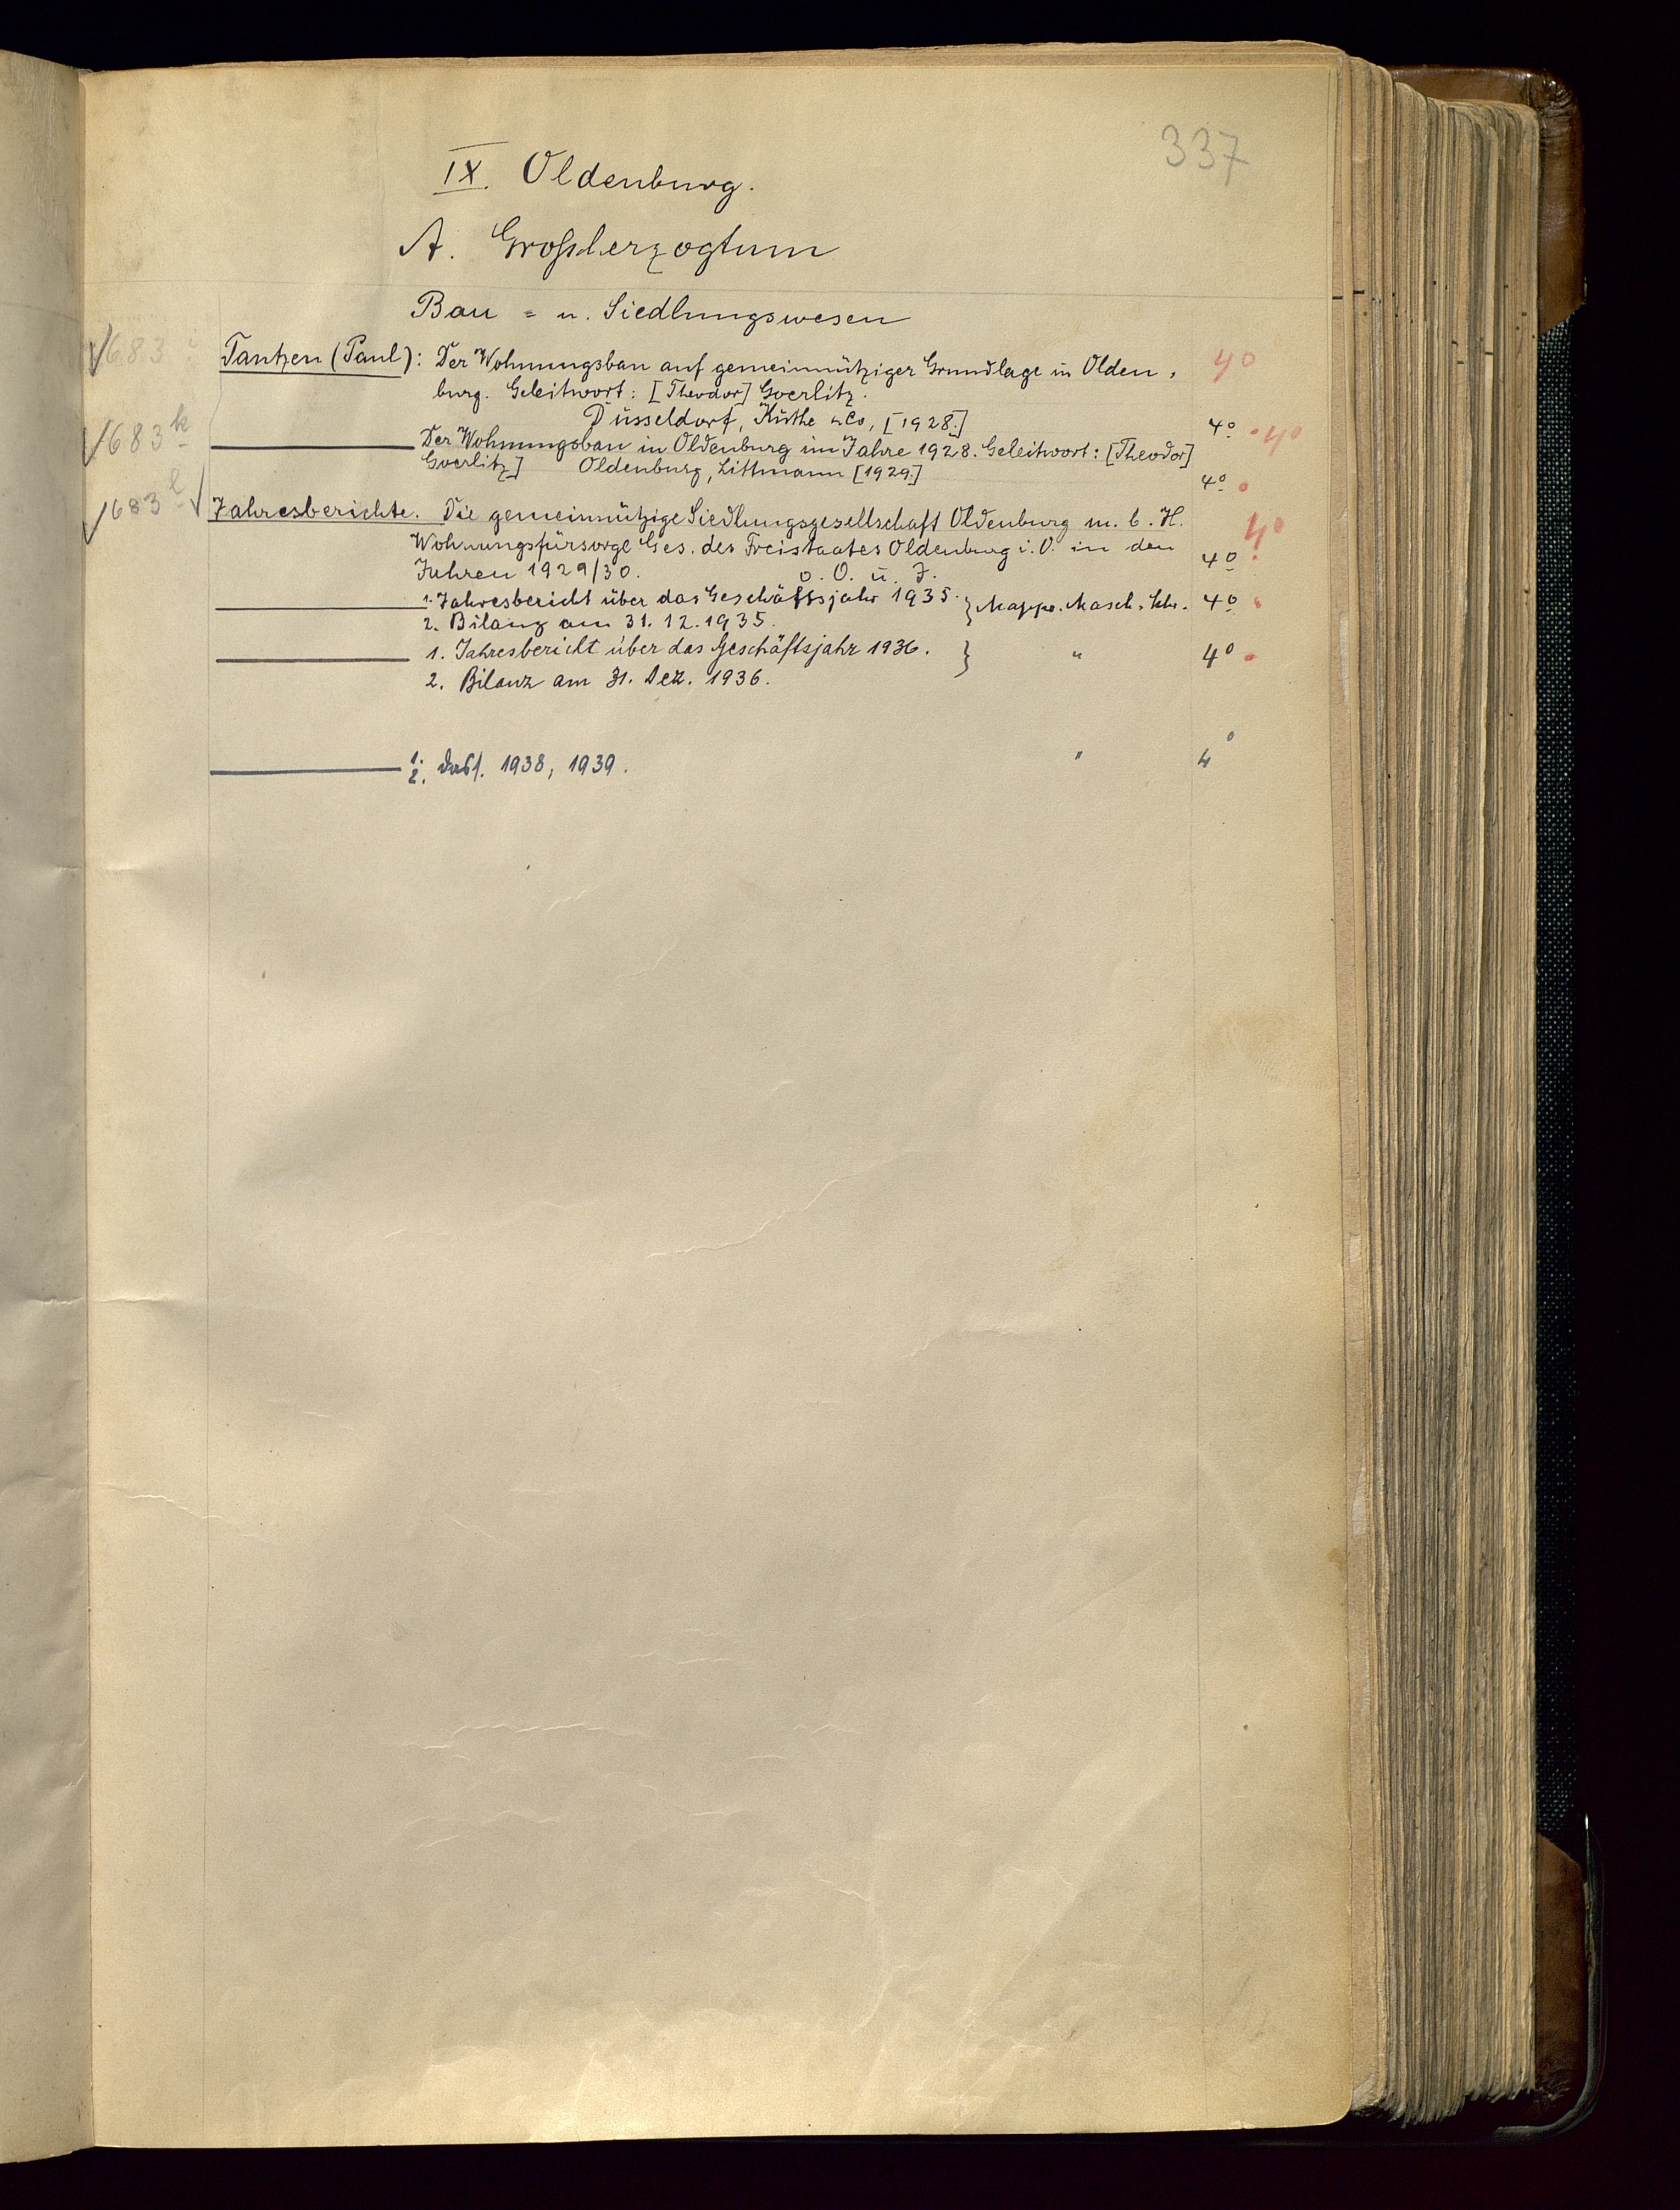 337
IX. Oldenburg.
A. Großherzogtum
Bau = u. Siedlungswesen
683 Tantzen (Paul): Der Wohnungsbau auf gemeinnütziger Grundlage in Olden, 40
burg. Geleitwort: [Theodor] Goerlitz.
Düsseldorf, Küthe & Co, [1928.] 4° 40
683 k Der Wohnungsbau in Oldenburg im Jahre 1928. Geleitwort: [Theodor]
Goerlitz] Oldenburg, Littmann [1929.] 4°
683 l Jahresberichte. Die gemeinnützige Siedlungsgesellschaft Oldenburg m. b. H. 40
Wohnungsfürsorge Ges. des Freistaates Oldenburg i. O. in den
Jahren 1929/30. o. O. u. J. 4°
1. Jahresbericht über das Geschäftsjahr 1935. } Mappe. Masch. Schr. 4°
2. Bilanz am 31.12.1935.
1. Jahresbericht über das Geschäftsjahr 1936. } " 4°
2. Bilanz am 31. Dez. 1936.
1. 2. dass. 1938, 1939. " 4°